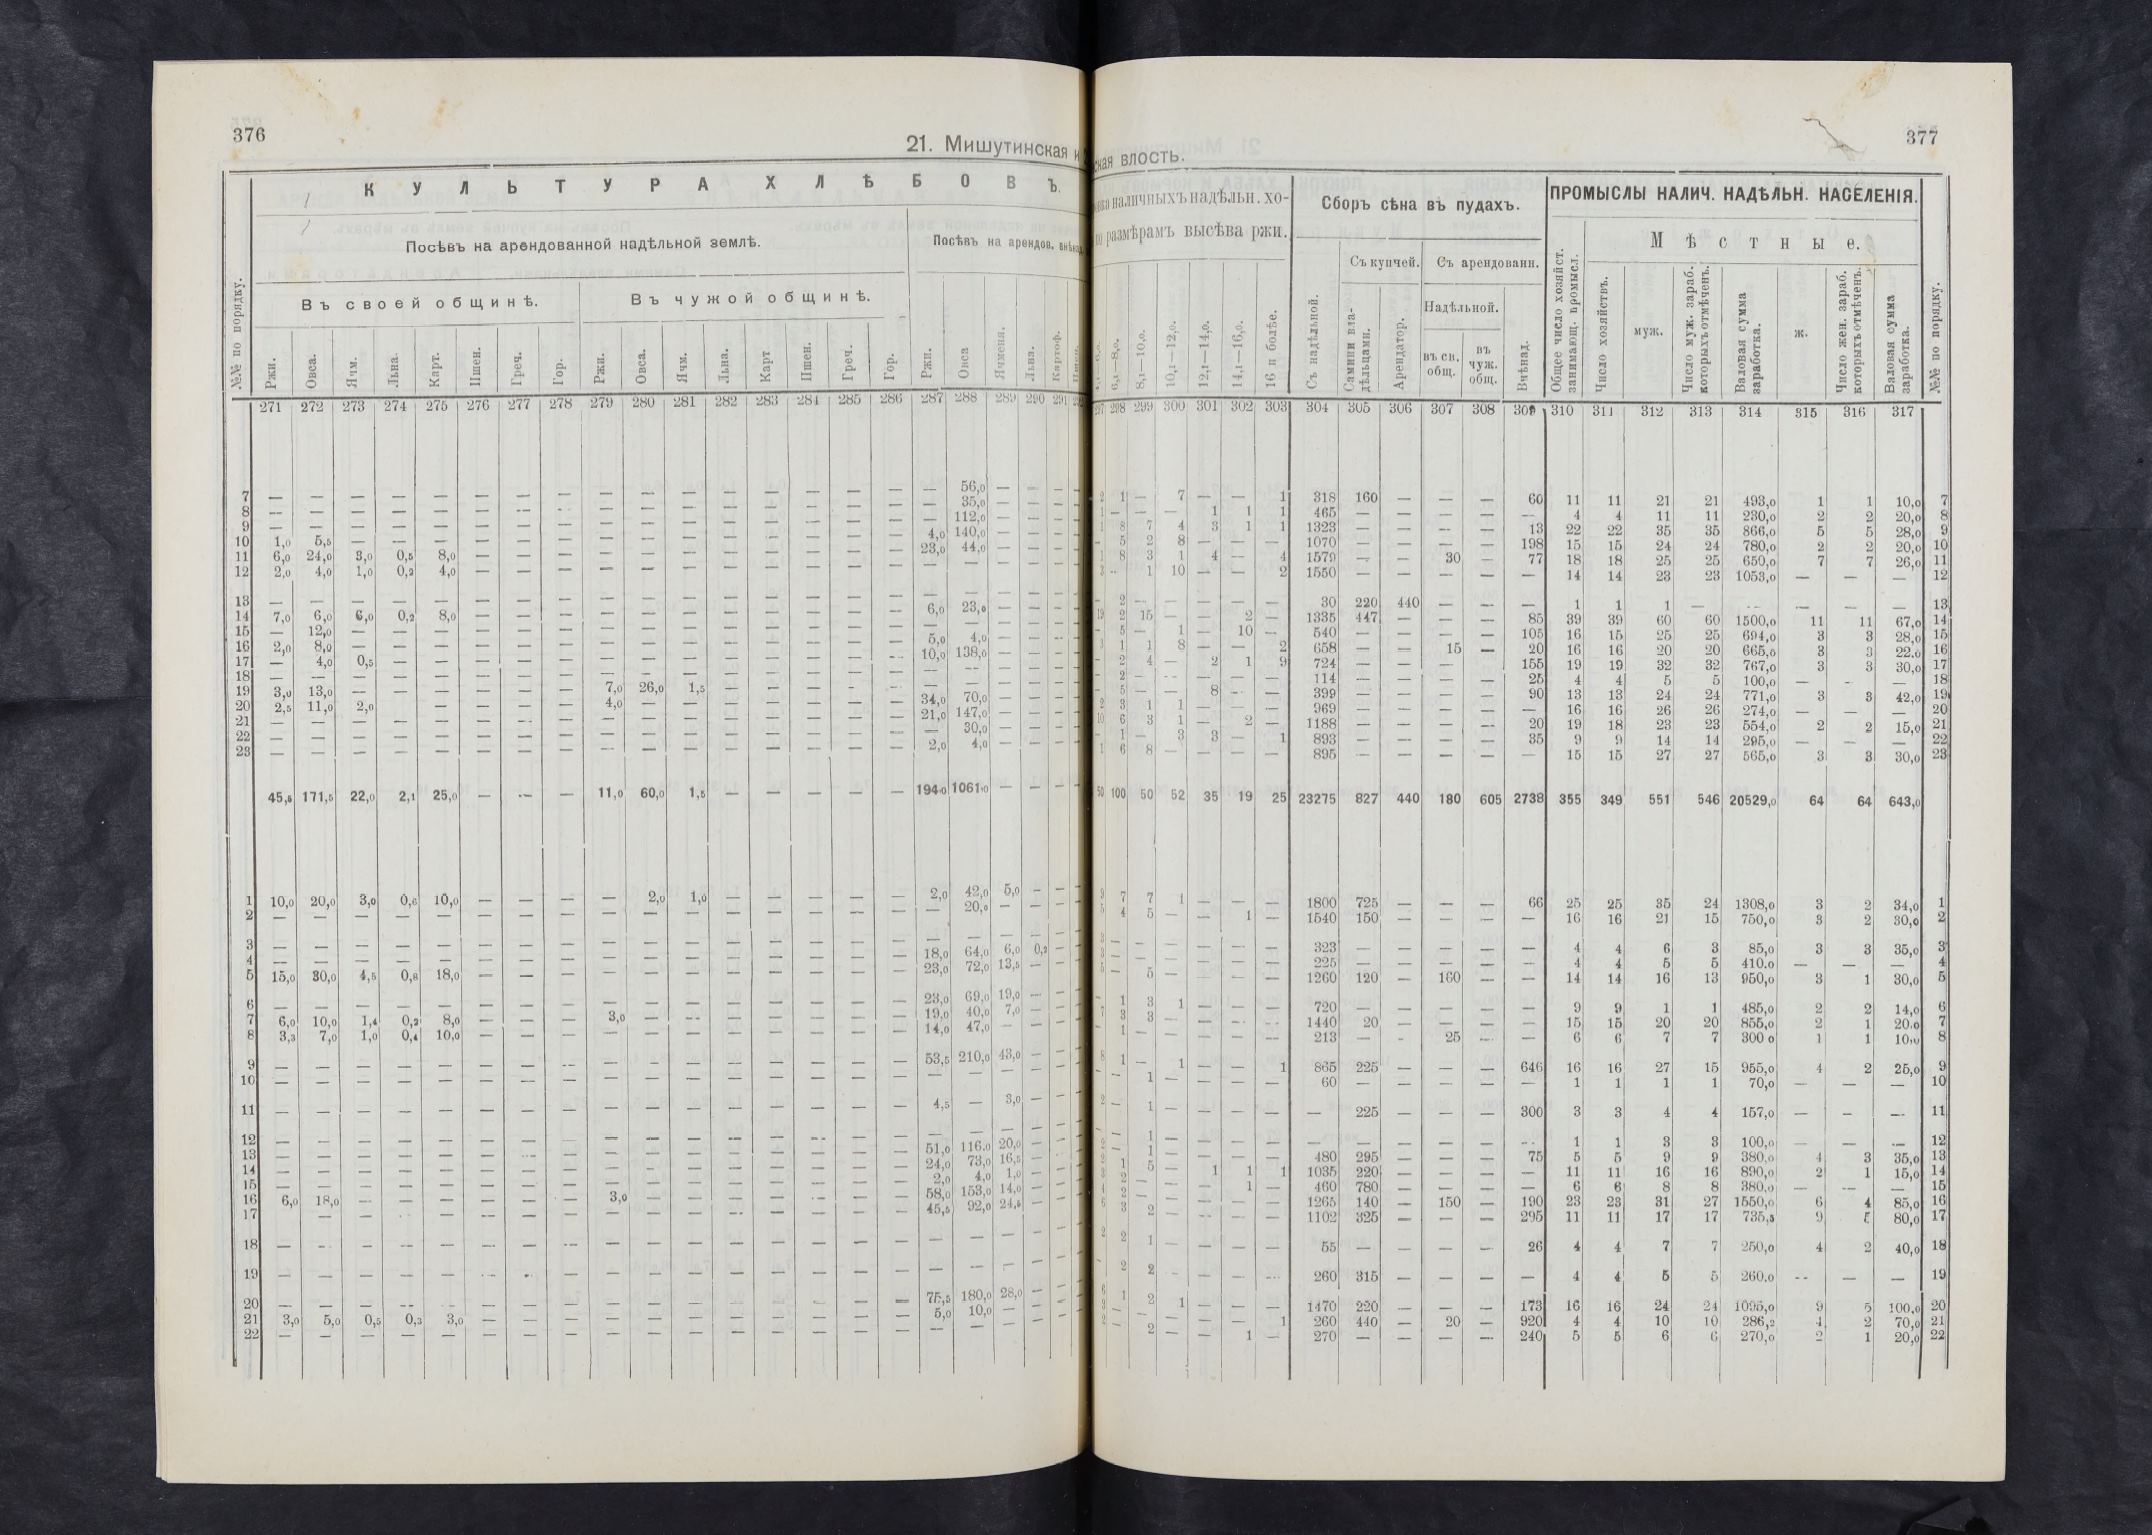 376
21. Мишутинская и
КУЛЬТУРА ХЛѢБОВЪ.
Посѣвъ на арендованной надѣльной землѣ.
Посѣвъ на арендов.
Въ своей общинѣ.
Въ чужой общинѣ.
№№ по порядку.
Ржи. Овса. Ячм. Льна. Карт. Пшен. Греч. Гор. Ржи. Овса. Ячм. Льна. Карт Пшен. Греч. Гор. Ржи. Овса Ячменя. Льна. Картоф.
271 272 273 274 275 276 277 278 279 280 281 282 283 284 285 286 287 288 289 290 291
7 — — — — — — — — — — — — — — — — — 56,0 — —
8 — — — — — — — — — — — — — — — — — 35,0 — —
9 — — — — — — — — — — — — — — — — — 112,0 — —
10 1,0 5,5 — — — — — — — — — — — — — — 4,0 140,0 — —
11 6,0 24,0 3,0 0,5 8,0 — — — — — — — — — — — 23,0 44,0 — —
12 2,0 4,0 1,0 0,2 4,0 — — — — — — — — — — — — — — —
13 — — — — — — — — — — — — — — — — — — — —
14 7,0 6,0 6,0 0,2 8,0 — — — — — — — — — — — 6,0 23,0 — —
15 — 12,0 — — — — — — — — — — — — — — — — — —
16 2,0 8,0 — — — — — — — — — — — — — — 5,0 4,0 — —
17 — 4,0 0,5 — — — — — — — — — — — — — 10,0 138,0 — —
18 — — — — — — — — — — — — — — — — — — — —
19 3,0 13,0 — — — — — — 7,0 26,0 1,5 — — — — — — — — —
20 2,5 11,0 2,0 — — — — — 4,0 — — — — — — — 34,0 70,0 — —
21 — — — — — — — — — — — — — — — — 21,0 147,0 — —
22 — — — — — — — — — — — — — — — — — 30,0 — —
23 — — — — — — — — — — — — — — — — 2,0 4,0 — —
45,5 171,5 22,0 2,1 25,0 — — — 11,0 60,0 1,5 — — — — — 194,0 1061,0 — —
1 10,0 20,0 3,0 0,6 10,0 — — — — 2,0 1,0 — — — — — 2,0 42,0 5,0 —
2 — — — — — — — — — — — — — — — — — 20,0 — —
3 — — — — — — — — — — — — — — — — — — — —
4 — — — — — — — — — — — — — — — — 18,0 64,0 6,0 0,2
5 15,0 30,0 4,5 0,8 18,0 — — — — — — — — — — — 23,0 72,0 13,5 —
6 — — — — — — — — — — — — — — — — 23,0 69,0 19,0 —
7 6,0 10,0 1,4 0,2 8,0 — — — 3,0 — — — — — — — 19,0 40,0 7,0 —
8 3,3 7,0 1,0 0,4 10,0 — — — — — — — — — — — 14,0 47,0 — —
9 — — — — — — — — — — — — — — — — 53,5 210,0 43,0 —
10 — — — — — — — — — — — — — — — — — — — —
11 — — — — — — — — — — — — — — — — 4,5 — 3,0 —
12 — — — — — — — — — — — — — — — — — — — —
13 — — — — — — — — — — — — — — — — 51,0 116,0 20,0 —
14 — — — — — — — — — — — — — — — — 24,0 73,0 16,5 —
15 — — — — — — — — — — — — — — — — 2,0 4,0 1,0 —
16 6,0 18,0 — — — — — — 3,0 — — — — — — — 58,0 153,0 14,0 —
17 — — — — — — — — — — — — — — — 45,5 92,0 24,5 —
18 — — — — — — — — — — — — — — — — — — — —
19 — — — — — — — — — — — — — — — — — — — —
20 — — — — — — — — — — — — — — — — 75,5 180,0 28,0 —
21 3,0 5,0 0,5 0,3 3,0 — — — — — — — — — — — 5,0 10,0 — —
22 — — — — — — — — — — — — — — — — — — — —
377
ская влость.
наличныхъ надѣльн. хо-
размѣрамъ высѣва ржи.
Сборъ сѣна въ пудахъ.
ПРОМЫСЛЫ НАЛИЧ. НАДѢЛЬН. НАСЕЛЕНІЯ.
Мѣстные.
Съ купчей. Съ арендованн.
Надѣльной.
6,1—8,0. 8,1—10,0. 10,1—12,0. 12,1—14,0. 14,1—16,0. 16 и болѣе. Съ надѣльной. Самими вла-дѣльцами. Арендатор. въ св. общ. въ чуж. общ. Внѣнад. Общее число хозяйст. занимающ. промысл. Число хозяйствъ. муж. Число муж. зараб. которыхъ отмѣченъ. Валовая сумма заработка. ж. Число жен. зараб. которыхъ отмѣченъ. Валовая сумма заработка. №№ по порядку.
297 298 299 300 301 302 303 304 305 306 307 308 309 310 311 312 313 314 315 316 317
2 1 — 7 — — 1 318 160 — — — 60 11 11 21 21 493,0 1 1 10,0 7
1 — — — 1 1 1 465 — — — — — 4 4 11 11 230,0 2 2 20,0 8
1 8 7 4 3 1 1 1323 — — — — 13 22 22 35 35 866,0 5 5 28,0 9
— 5 2 8 — — — 1070 — — — — 198 15 15 24 24 780,0 2 2 20,0 10
1 8 3 1 4 — 4 1579 — — 30 — 77 18 18 25 25 650,0 7 7 26,0 11
3 — 1 10 — — 2 1550 — — — — — 14 14 23 23 1053,0 — — — 12
— 2 — — — — — 30 220 440 — — — 1 1 1 — — — — — 13
19 2 15 — — 2 — 1335 447 — — — 85 39 39 60 60 1500,0 11 11 67,0 14
— 5 — 1 — 10 — 540 — — — — 105 16 15 25 25 694,0 3 3 28,0 15
3 1 1 8 — — 2 658 — — 15 — 20 16 16 20 20 665,0 3 3 22,0 16
— 2 4 — 2 1 9 724 — — — — 155 19 19 32 32 767,0 3 3 30,0 17
— 2 — — — — — 114 — — — — 25 4 4 5 5 100,0 — — — 18
— 5 — — 8 — — 399 — — — — 90 13 13 24 24 771,0 3 3 42,0 19
2 3 1 1 — — — 969 — — — — — 16 16 26 26 274,0 — — — 20
10 6 3 1 — 2 — 1188 — — — — 20 19 18 23 23 554,0 2 2 15,0 21
— 1 — 3 3 — 1 893 — — — — 35 9 9 14 14 295,0 — — — 22
1 6 8 — — — — 895 — — — — — 15 15 27 27 565,0 3 3 30,0 23
50 100 50 52 35 19 25 23275 827 440 180 605 2738 355 349 551 546 20529,0 64 64 643,0
9 7 7 1 — — — 1800 725 — — — 66 25 25 35 24 1308,0 3 2 34,0 1
5 4 5 — — 1 — 1540 150 — — — — 16 16 21 15 750,0 3 2 30,0 2
3 — — — — — — 323 — — — — — 4 4 6 3 85,0 3 3 35,0 3
3 — — — — — — 225 — — — — — 4 4 5 5 410,0 — — — 4
5 — 5 — — — — 1260 120 — 160 — — 14 14 16 13 950,0 3 1 30,0 5
— 1 3 1 — — — 720 — — — — — 9 9 1 1 485,0 2 2 14,0 6
7 3 3 — — — — 1440 20 — — — — 15 15 20 20 855,0 2 1 20,0 7
— 1 — — — — — 213 — — 25 — — 6 6 7 7 300 0 1 1 10,0 8
8 1 — 1 — — 1 865 225 — — — 646 16 16 27 15 955,0 4 2 25,0 9
— — 1 — — — — 60 — — — — — 1 1 1 1 70,0 — — — 10
2 — 1 — — — — — 225 — — — 300 3 3 4 4 157,0 — — — 11
— — 1 — — — — — — — — — — 1 1 3 3 100,0 — — — 12
2 — 1 — — — — 480 295 — — — 75 5 5 9 9 380,0 4 3 35,0 13
1 5 — 1 1 1 1035 220 — — — — 11 11 16 16 890,0 2 1 15,0 14
2 — — — 1 — 460 780 — — — — 6 6 8 8 380,0 — — — 15
4 2 — — — — — 1265 140 — 150 — 190 23 23 31 27 1550,0 6 4 85,0 16
6 3 2 — — — — 1102 325 — — — 295 11 11 17 17 735,5 9 80,0 17
2 2 1 — — — — 55 — — — — 26 4 4 7 7 250,0 4 2 40,0 18
— 2 2 — — — — 260 315 — — — — 4 4 5 5 260,0 — — — 19
6 1 2 1 — — — 1470 220 — — — 173 16 16 24 24 1095,0 9 5 100,0 20
3 — — — — — 1 260 440 — 20 — 920 4 4 10 10 286,2 4 2 70,0 21
2 — 2 — — 1 — 270 — — — — 240 5 5 6 6 270,0 2 1 20,0 22